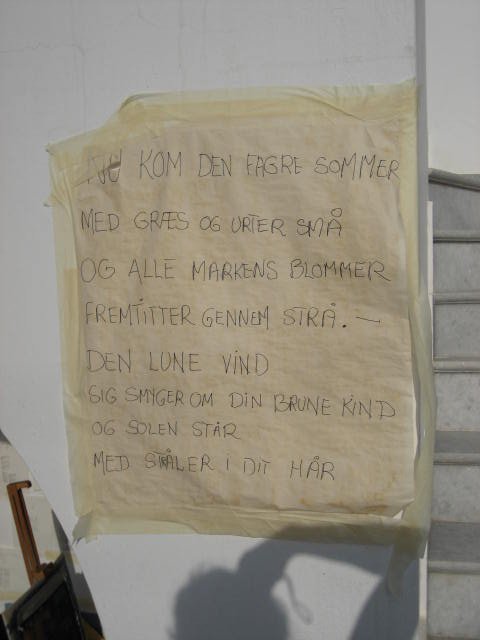 NU KOM DEN FAGRE SOMMER
MED GRÆS OG URTER SMÅ
OG ALLE MARKENS BLOMMER
FREMTITTER GENNEM STRÅ. —
DEN LUNE VIND
SIG SMYGER OM DIN BRUNE KIND
OG SOLEN STÅR
MED STRÅLER I DIT HÅR